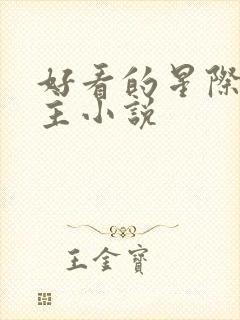 好看的星際
主小說
王金寶